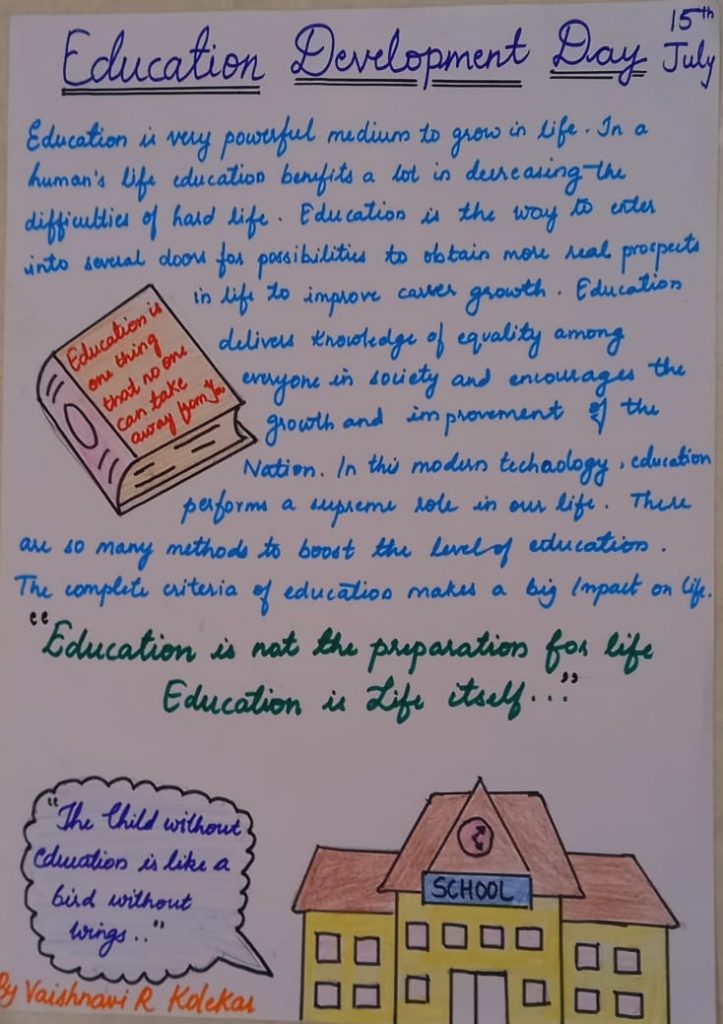 Education Development Day
15th
July
Education is very powerful medium to grow in life. In a
human's life education benefits a lot in decreasing the
difficulties of hard life. Education is the way to enter
into several doors for possibilities to obtain more real prospects
in life to improve career growth. Education
delivers knowledge of equality among
everyone in society and encourages the
growth and improvement of the
Nation. In this modern techadology, education
performs a supreme role in our life. There
are so many methods to boost the level of education.
The complete criteria of education makes a big Impact on life.
Education is
one thing
that no one
can take
away from You
"Education is not the preparation for life
Education is Life itself..."
"The Child without
Education is like a
bird without
wings.."
SCHOOL
By Vaishnavi R Kolekar